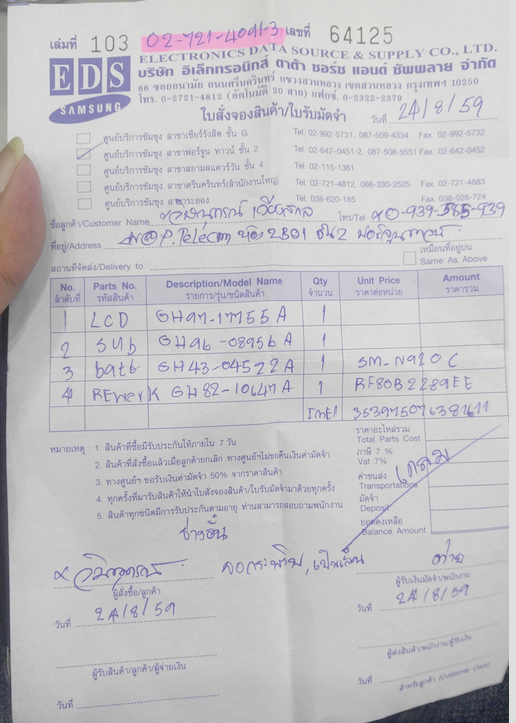 เล่มที่ 103 02-721-4091-3 เลขที่ 64125
EDS
SAMSUNG
ELECTRONICS DATA SOURCE & SUPPLY CO., LTD.
บริษัท อิเล็กทรอนิกส์ ดาต้า ซอร์ซ แอนด์ ซัพพลาย จำกัด
66 ซอยอนามัย ถนนศรีนครินทร์ แขวงสวนหลวง เขตสวนหลวง กรุงเทพฯ 10250
โทร. 0-2721-4812 (อัตโนมัติ 20 สาย) แฟกซ์. 0-2322-2379
ใบสั่งจองสินค้า/ใบรับมัดจำ วันที่ 24/8/59
ศูนย์บริการซัมซุง สาขาเซียร์รังสิต ชั้น G Tel. 02-992-5731, 087-509-4334 Fax. 02-992-5732
ศูนย์บริการซัมซุง สาขาฟอร์จูน ทาวน์ ชั้น 2 Tel. 02-642-0451-2, 087-508-5551 Fax. 02-642-0452
ศูนย์บริการซัมซุง สาขาสยามสแควร์วัน ชั้น 4 Tel. 02-115-1361
ศูนย์บริการซัมซุง สาขาศรีนครินทร์(สำนักงานใหญ่) Tel. 02-721-4812, 086-330-2525 Fax. 02-721-4883
ศูนย์บริการซัมซุง สาขาระยอง Tel. 038-620-185 Fax. 038-026-724
ชื่อลูกค้า/Customer Name โทร/Tel 90-939-585-939
ที่อยู่/Address @P.Telecom ห้อง 2B01 ชั้น 2 ฟอร์จูนทาวน์
เหมือนที่อยู่บน
สถานที่จัดส่ง/Delivery to Same As Above
No. Parts No. Description/Model Name Qty Unit Price Amount
ลำดับที่ รหัสสินค้า รายการ/รุ่น/ชนิดสินค้า จำนวน ราคาต่อหน่วย ราคารวม
1 LCD GH97-17755A 1
2 SUB GH96-08956A 1
3 batt GH43-04522A 1 SM-N920C
4 REWORK GH82-10647A 1 RF80B2289EE
IMEI 353975076387611
หมายเหตุ : 1. สินค้าที่ซื้อมีรับประกันให้ภายใน 7 วัน
2. สินค้าที่สั่งซื้อแล้วเมื่อลูกค้ายกเลิก ทางศูนย์ฯไม่ขอคืนเงินค่ามัดจำ
3. ทางศูนย์ฯ ขอรับเงินค่ามัดจำ 50% จากราคาสินค้า
4. ทุกครั้งที่มารับสินค้าให้นำใบสั่งจองสินค้า/ใบรับมัดจำมาด้วยทุกครั้ง
5. สินค้าทุกชนิดมีการรับประกันตามอายุ ท่านสามารถสอบถามพนักงาน
ราคาอะไหล่รวม
Total Parts Cost
ภาษี 7 %
Vat 7%
ค่าขนส่ง
Transportations
มัดจำ
Deposit
ยอดคงเหลือ
Balance Amount
จอกระพริบ, เป็นเส้น
ผู้สั่งซื้อ/ลูกค้า
วันที่ 24/8/59
ผู้รับเงินมัดจำ/พนักงาน
วันที่ 24/8/59
ผู้รับสินค้า/ลูกค้า/ผู้จ่ายเงิน
วันที่
ผู้ส่งสินค้า/พนักงาน/ผู้รับเงิน
วันที่
สำหรับลูกค้า (Customer Copy)